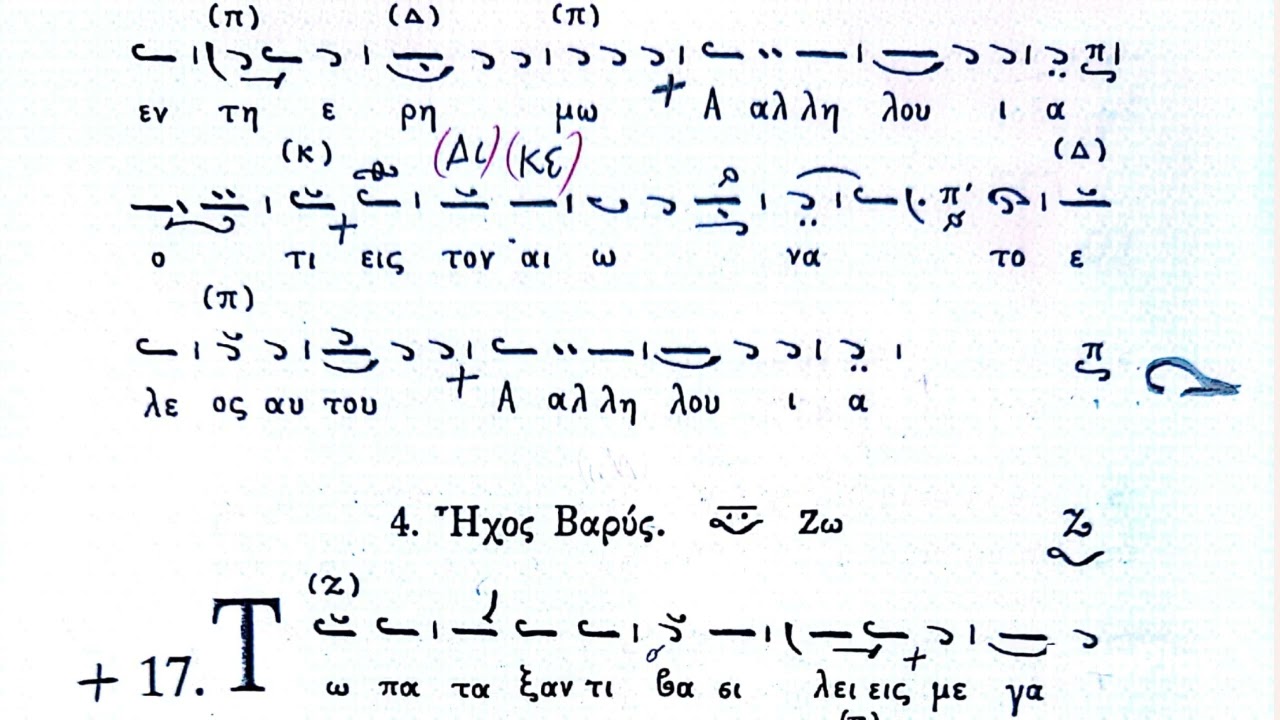 (π) (Δ) (π)
εν τη ε ρη μω Α αλ λη λου ι α
(κ) (Δι) (κε) (Δ)
ο τι εις τον αι ω να το ε
(π)
λε ος αυ του Α αλ λη λου ι α
4. Ἦχος Βαρύς. Ζω
(Ζ)
+ 17. Τ ω πα τα ξαν τι βα σι λει εις με γα